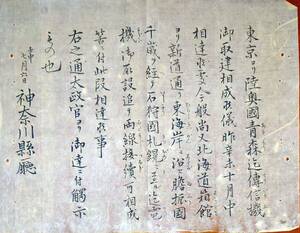 東京ヨリ陸奥國青森迄傳信機
御取建相成候儀昨辛未十月中
相達候處今般尚又北海道箱館
ヨリ新道通リ東海岸ニ沿ヒ膽振國
千歳ヲ經テ石狩國札幌ニ至ル迄電
機御取設追テ兩線接續可相成
筈ニ付此段相達候事
右之通太政官ヨリ御達ニ付觸示
もの也
壬申
七月六日
神奈川縣廳